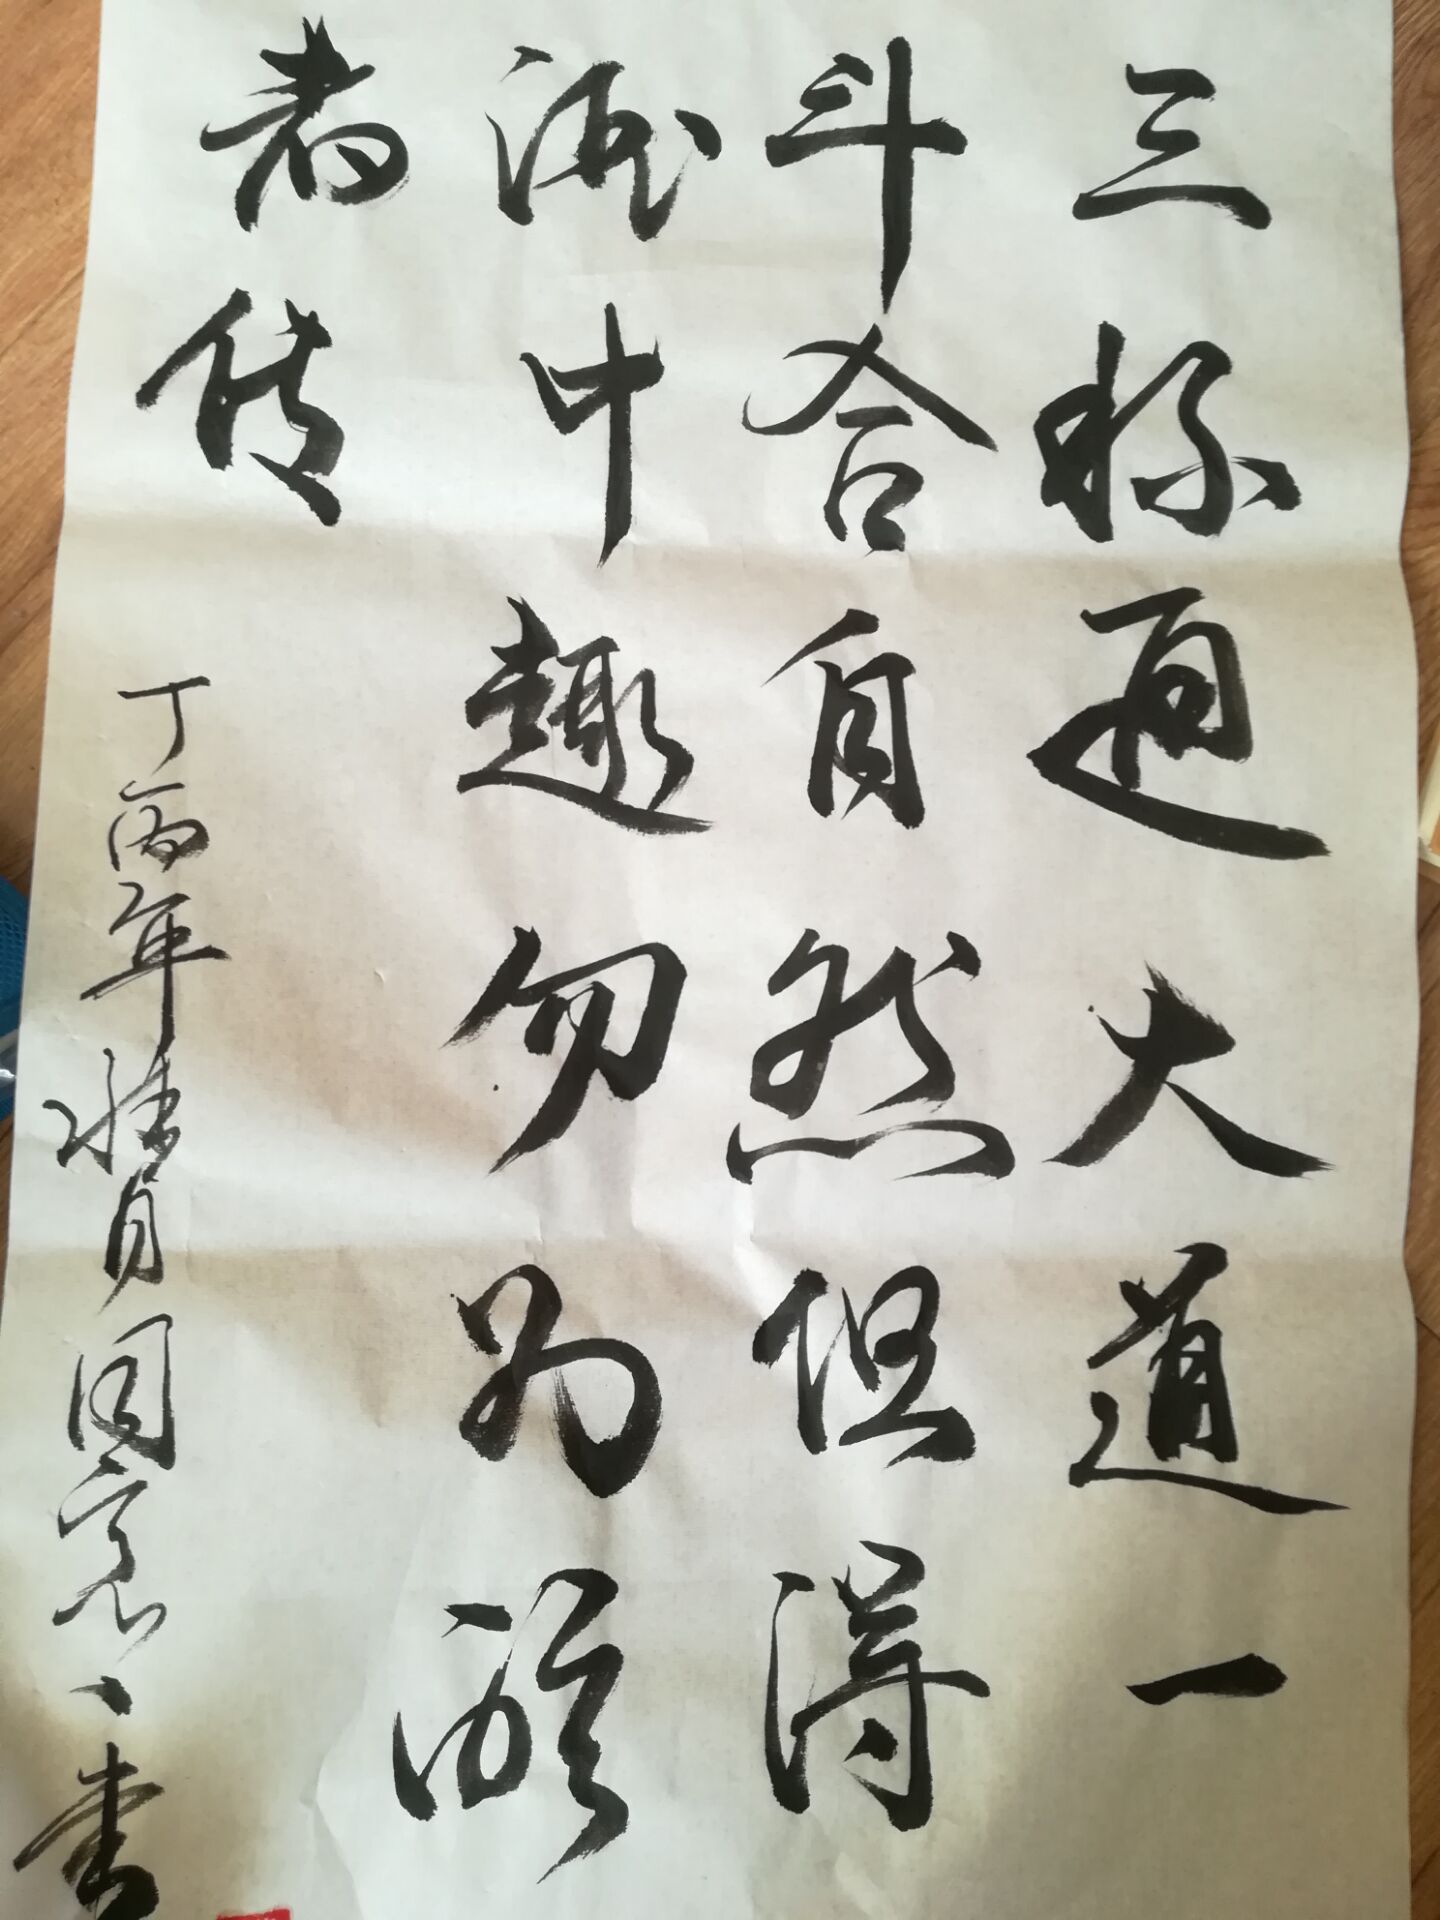 三杯通大道一
斗合自然但得
酒中趣勿为醒
者传
丁丙年
书